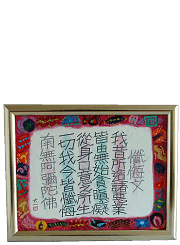 懺悔文
我昔所造諸惡業
皆由無始貪瞋癡
從身口意之所生
一切我今皆懺悔
南無阿彌陀佛